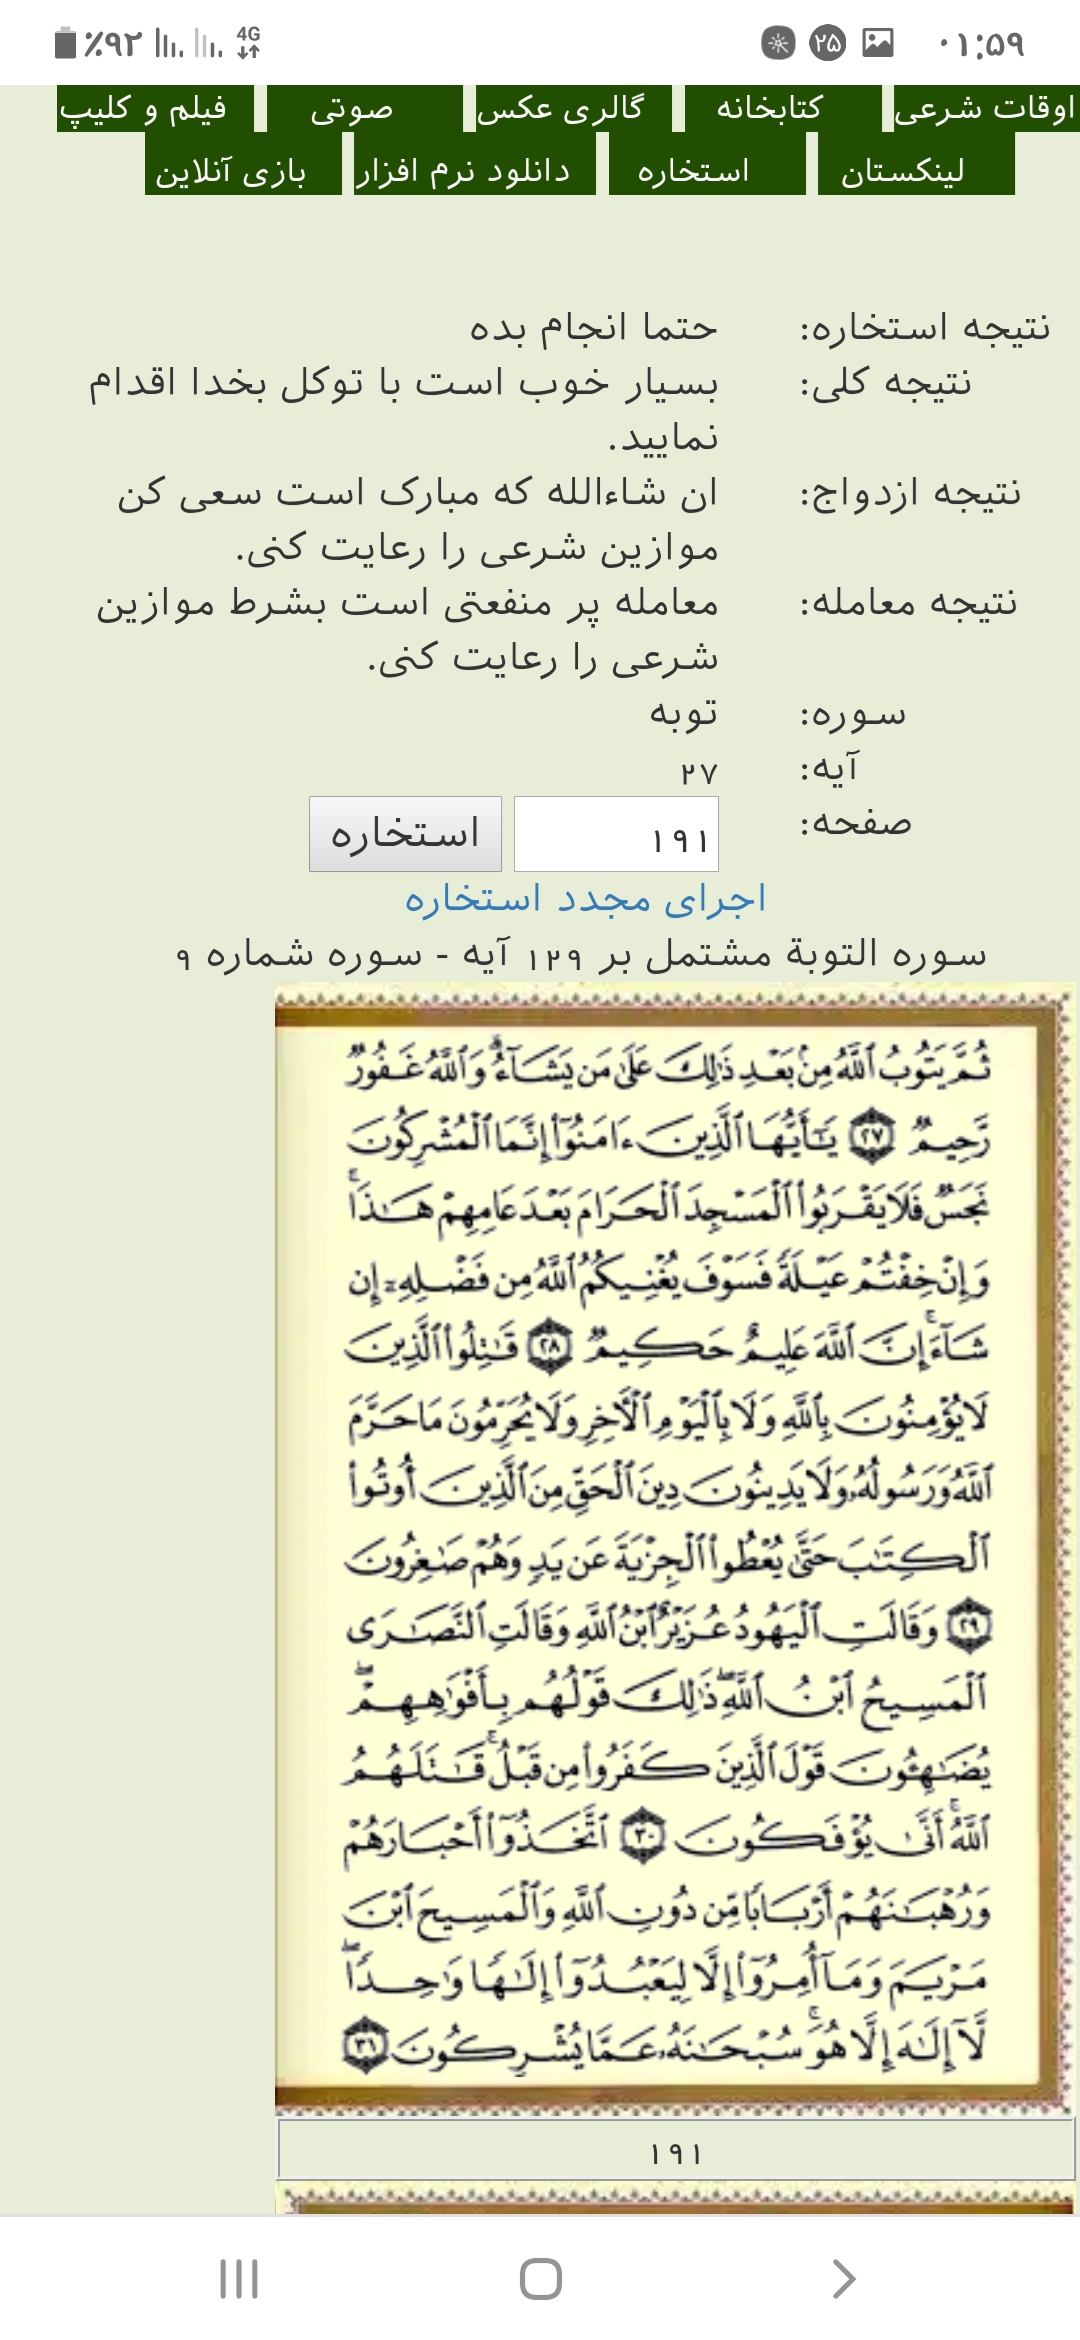 ۰۱:۵۹
۲۵
4G
٪۹۲
اوقات شرعی کتابخانه گالری عکس صوتی فیلم و کلیپ
لینکستان استخاره دانلود نرم افزار بازی آنلاین
نتیجه استخاره: حتما انجام بده
نتیجه کلی: بسیار خوب است با توکل بخدا اقدام
نمایید.
نتیجه ازدواج: ان شاءالله که مبارک است سعی کن
موازین شرعی را رعایت کنی.
نتیجه معامله: معامله پر منفعتی است بشرط موازین
شرعی را رعایت کنی.
سوره: توبه
آیه: ۲۷
صفحه: ۱۹۱ استخاره
اجرای مجدد استخاره
سوره التوبة مشتمل بر ۱۲۹ آیه - سوره شماره ۹
ثُمَّ يَتُوبُ ٱللَّهُ مِنۢ بَعْدِ ذَٰلِكَ عَلَىٰ مَن يَشَآءُ ۗ وَٱللَّهُ غَفُورٌ
رَّحِيمٌ ٢٧ يَٰٓأَيُّهَا ٱلَّذِينَ ءَامَنُوٓا۟ إِنَّمَا ٱلْمُشْرِكُونَ
نَجَسٌ فَلَا يَقْرَبُوا۟ ٱلْمَسْجِدَ ٱلْحَرَامَ بَعْدَ عَامِهِمْ هَٰذَا ۚ
وَإِنْ خِفْتُمْ عَيْلَةً فَسَوْفَ يُغْنِيكُمُ ٱللَّهُ مِن فَضْلِهِۦٓ إِن
شَآءَ ۚ إِنَّ ٱللَّهَ عَلِيمٌ حَكِيمٌ ٢٨ قَٰتِلُوا۟ ٱلَّذِينَ
لَا يُؤْمِنُونَ بِٱللَّهِ وَلَا بِٱلْيَوْمِ ٱلْءَاخِرِ وَلَا يُحَرِّمُونَ مَا حَرَّمَ
ٱللَّهُ وَرَسُولُهُۥ وَلَا يَدِينُونَ دِينَ ٱلْحَقِّ مِنَ ٱلَّذِينَ أُوتُوا۟
ٱلْكِتَٰبَ حَتَّىٰ يُعْطُوا۟ ٱلْجِزْيَةَ عَن يَدٍ وَهُمْ صَٰغِرُونَ
٢٩ وَقَالَتِ ٱلْيَهُودُ عُزَيْرٌ ٱبْنُ ٱللَّهِ وَقَالَتِ ٱلنَّصَٰرَى
ٱلْمَسِيحُ ٱبْنُ ٱللَّهِ ۖ ذَٰلِكَ قَوْلُهُم بِأَفْوَٰهِهِمْ ۖ
يُضَٰهِـُٔونَ قَوْلَ ٱلَّذِينَ كَفَرُوا۟ مِن قَبْلُ ۚ قَٰتَلَهُمُ
ٱللَّهُ ۚ أَنَّىٰ يُؤْفَكُونَ ٣٠ ٱتَّخَذُوٓا۟ أَحْبَارَهُمْ
وَرُهْبَٰنَهُمْ أَرْبَابًا مِّن دُونِ ٱللَّهِ وَٱلْمَسِيحَ ٱبْنَ
مَرْيَمَ وَمَآ أُمِرُوٓا۟ إِلَّا لِيَعْبُدُوٓا۟ إِلَٰهًا وَٰحِدًا ۖ
لَّآ إِلَٰهَ إِلَّا هُوَ ۚ سُبْحَٰنَهُۥ عَمَّا يُشْرِكُونَ ٣١
۱۹۱